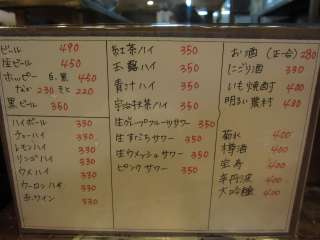 ビール 490
生ビール 450
ホッピー 白.黒 450
なか 230 そと 220
黒ビール 350
ハイボール 330
チューハイ 330
レモンハイ 330
リンゴハイ 330
ウメハイ 330
ウーロンハイ 330
赤.ワイン 330
紅茶ハイ 350
玉露ハイ 350
青汁ハイ 350
宇治抹茶ハイ 350
生グレープフルーツサワー 350
生すだちサワー 350
生ウメッシュサワー 350
ピンクサワー 350
お酒 (正一合) 280
にごり酒 330
いも焼酎 400
明るい農村 400
菊水 400
樽酒 400
400
400
大吟醸 400